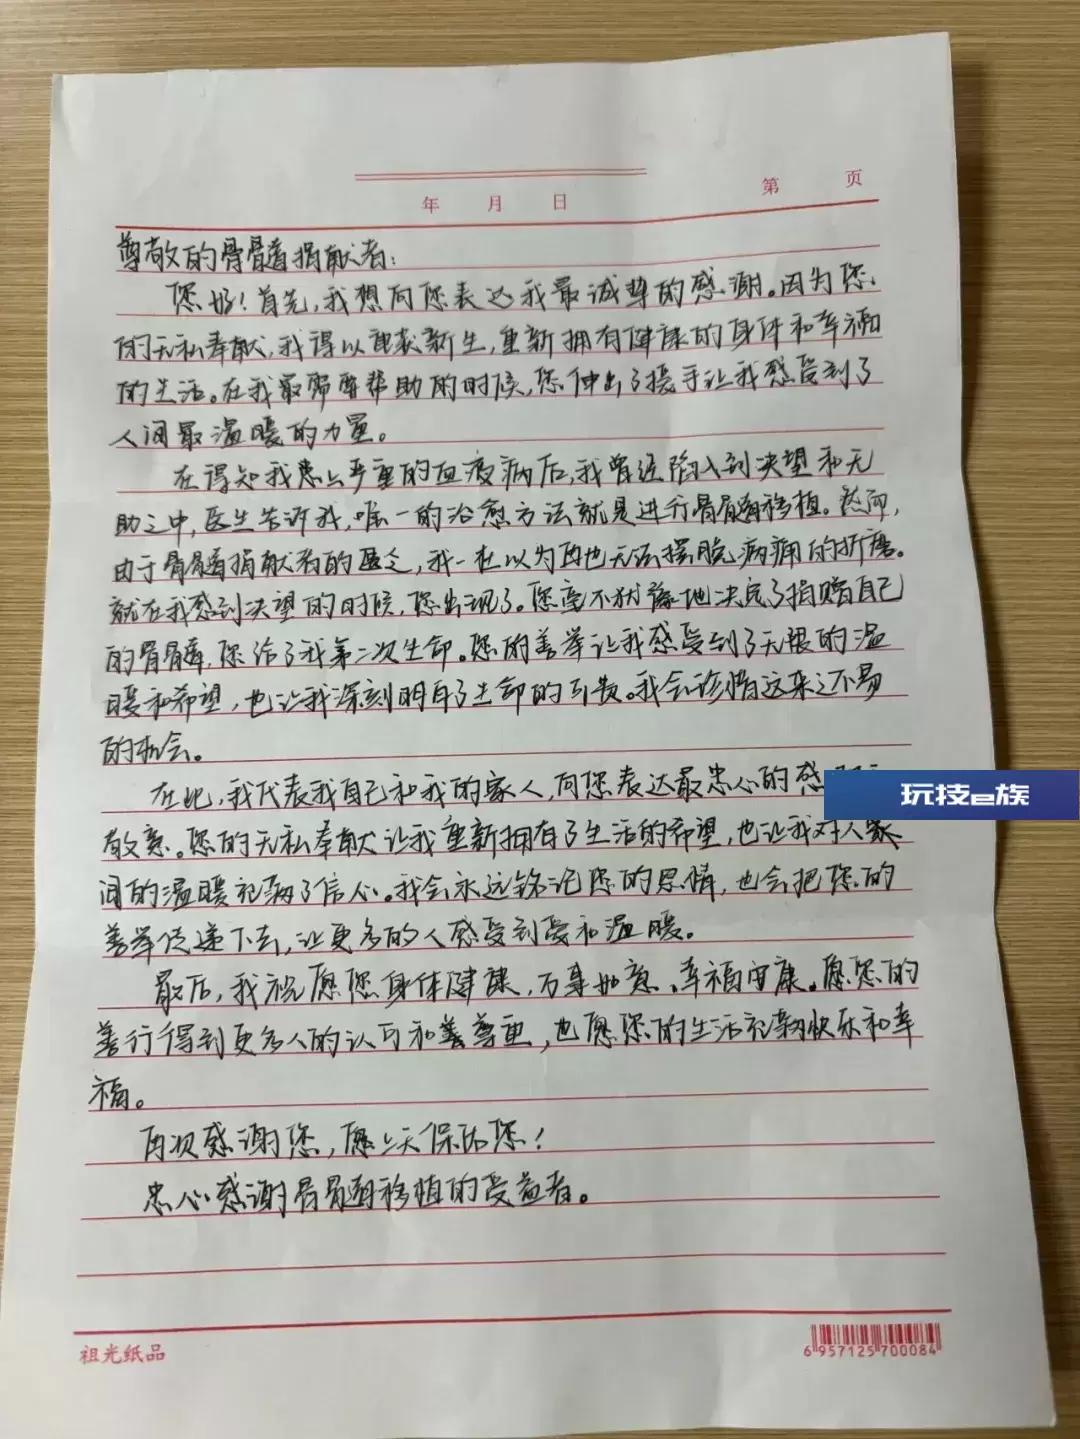 年 月 日 第 页
尊敬的骨髓捐献者:
您好!首先,我想向您表达我最诚挚的感谢。因为您
的无私奉献,我得以重获新生,重新拥有健康的身体和幸福
的生活。在我最需要帮助的时候,您伸出了援手让我感受到了
人间最温暖的力量。
在得知我患上严重的血疫病后,我曾经陷入到决望和无
助之中,医生告诉我,唯一的治愈方法就是进行骨髓移植。然而,
由于骨髓捐献者的匮乏,我一在以为再也无法摆脱病痛的折磨。
就在我感到决望的时候,您出现了。您毫不犹豫地决定了捐赠自己
的骨髓,您给了我第二次生命。您的善举让我感受到了无限的温
暖和希望,也让我深刻明白了生命的可贵。我会珍惜这来之不易
的机会。
在此,我代表我自己和我的家人,向您表达最忠心的感
敬意。您的无私奉献让我重新拥有了生活的希望,也让我对人
间的温暖充满了信心。我会永远铭记您的恩情,也会把您的
善举传递下去,让更多的人感受到爱和温暖。
最后,我祝愿您身体健康,万事如意、幸福安康。愿您的
善行得到更多人的认可和尊重,也愿您的生活充满快乐和幸
福。
再次感谢您,愿上天保佑您!
忠心感谢骨髓移植的受益者。
祖光纸品
6 957125 700084
玩技e族